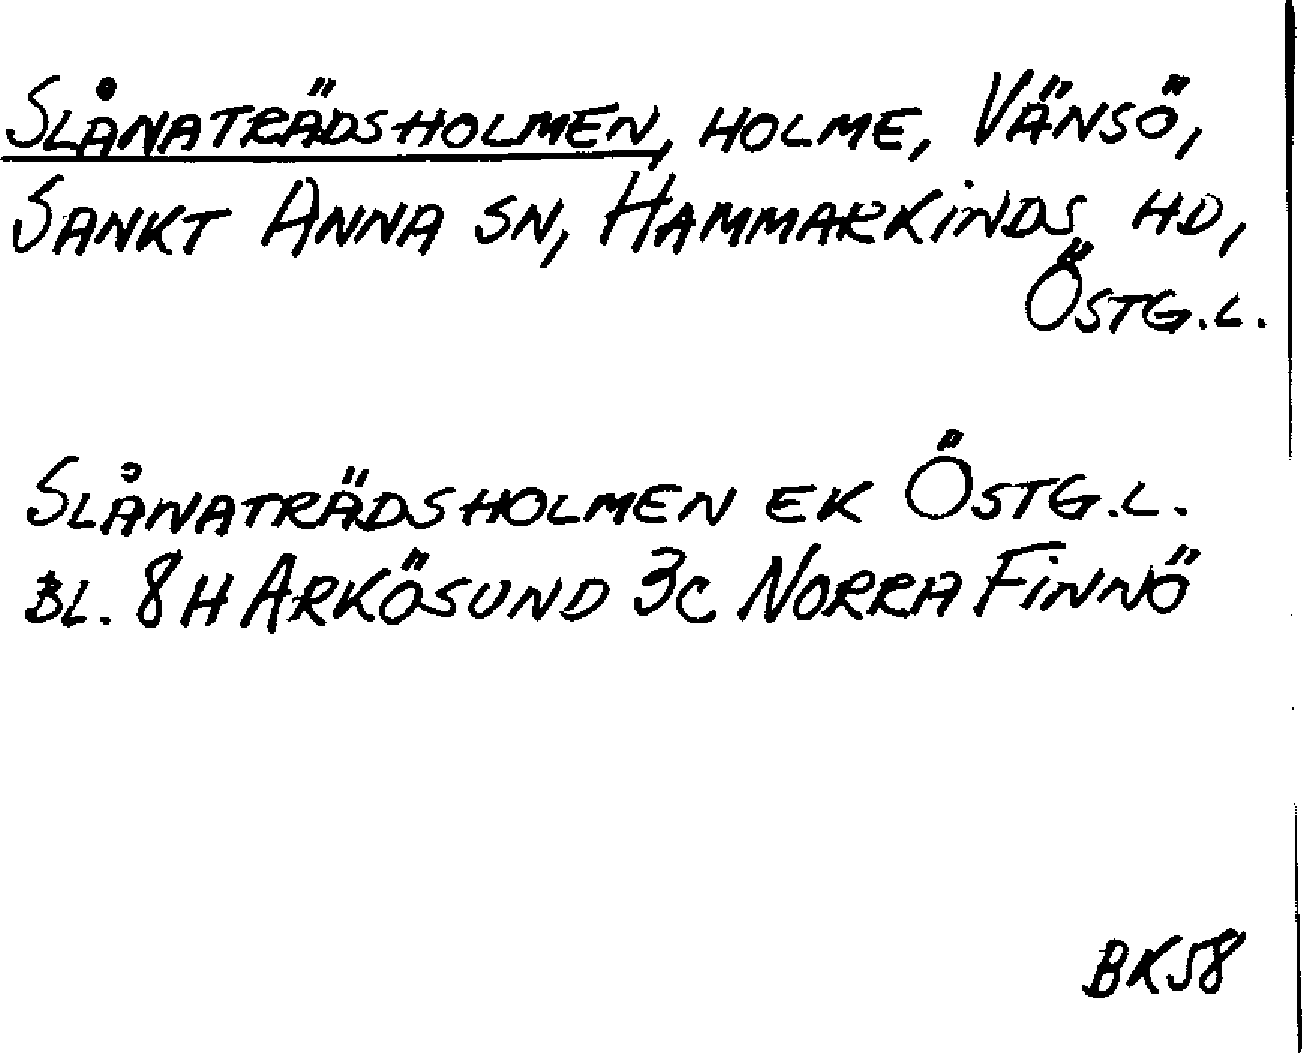 SLÅNATRÄDSHOLMEN, HOLME, VÄNSÖ,
SANKT ANNA SN, HAMMARKINDS HD,
ÖSTG.L.
SLÅNATRÄDSHOLMEN EK ÖSTG.L.
BL. 8H ARKÖSUND 3C NORRA FINNÖ
BK58